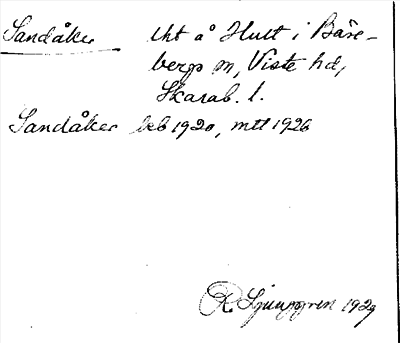 Sandåker lht å Hult i Bäre-
bergs sn, Viste hd,
Skarab. l.
Sandåker beb 1920, mtl 1926
R. Ljunggren 1929